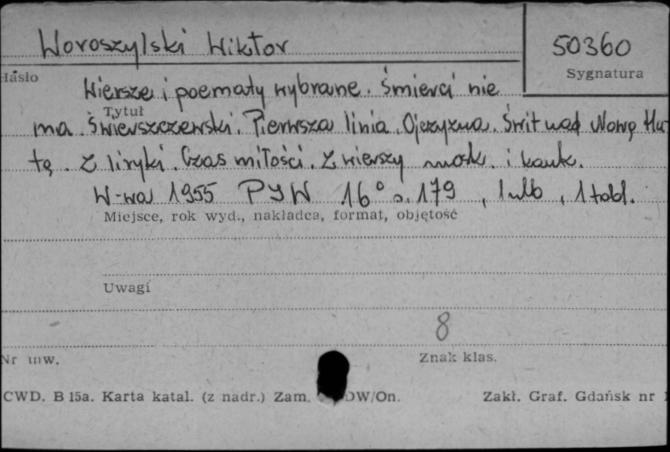 Woroszylski Wiktor
50360
Hasło
Sygnatura
Wiersze i poematy wybrane. Śmierci nie
Tytuł
ma. Świerszczewski. Pierwsza linia. Ojczyzna. Świt nad Nową Hu-
tę. Z liryki. Czas miłości. Z wierszy mosk. i kauk.
W-wa 1955 PIW 16° s. 179, 1 nlb, 1 tabl.
Miejsce, rok wyd., nakładca, format, objętość
Uwagi
8
Nr inw.
Znak klas.
CWD. B 15a. Karta katal. (z nadr.) Zam. DW/On.
Zakł. Graf. Gdańsk nr